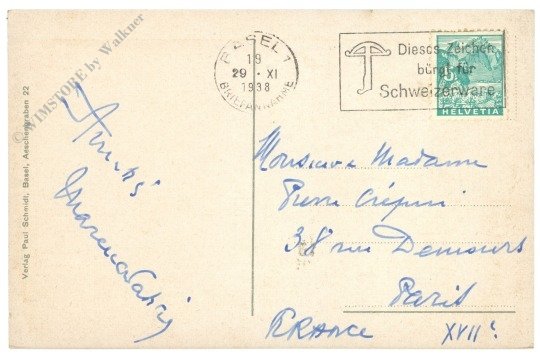 © WIMSTORE by Walkner
Verlag Paul Schmidt, Basel, Aeschengraben 22
BASEL 1
19
29 · XI
1938
BRIEFANNAHME
Dieses Zeichen
bürgt für
Schweizerware
5
HELVETIA
Amitiés
Monsieur Madame
Pierre Crépin
38 rue Demours
Paris
FRANCE
XVIIᵉ